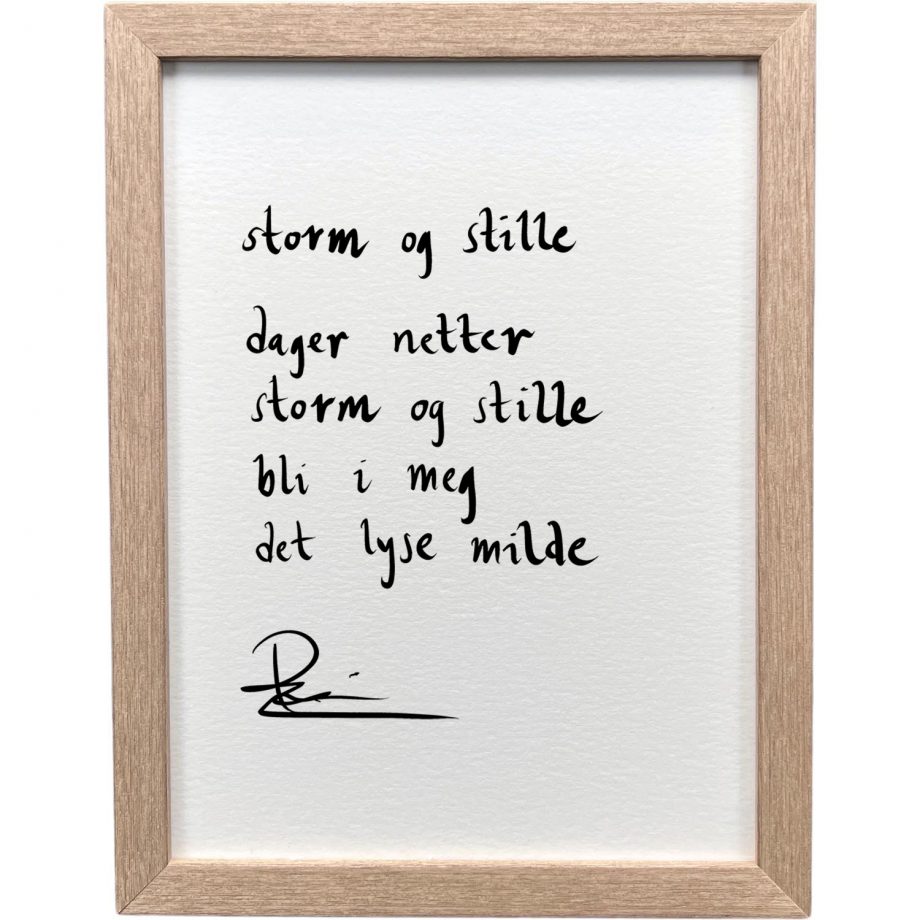 storm og stille
dager netter
storm og stille
bli i meg
det lyse milde